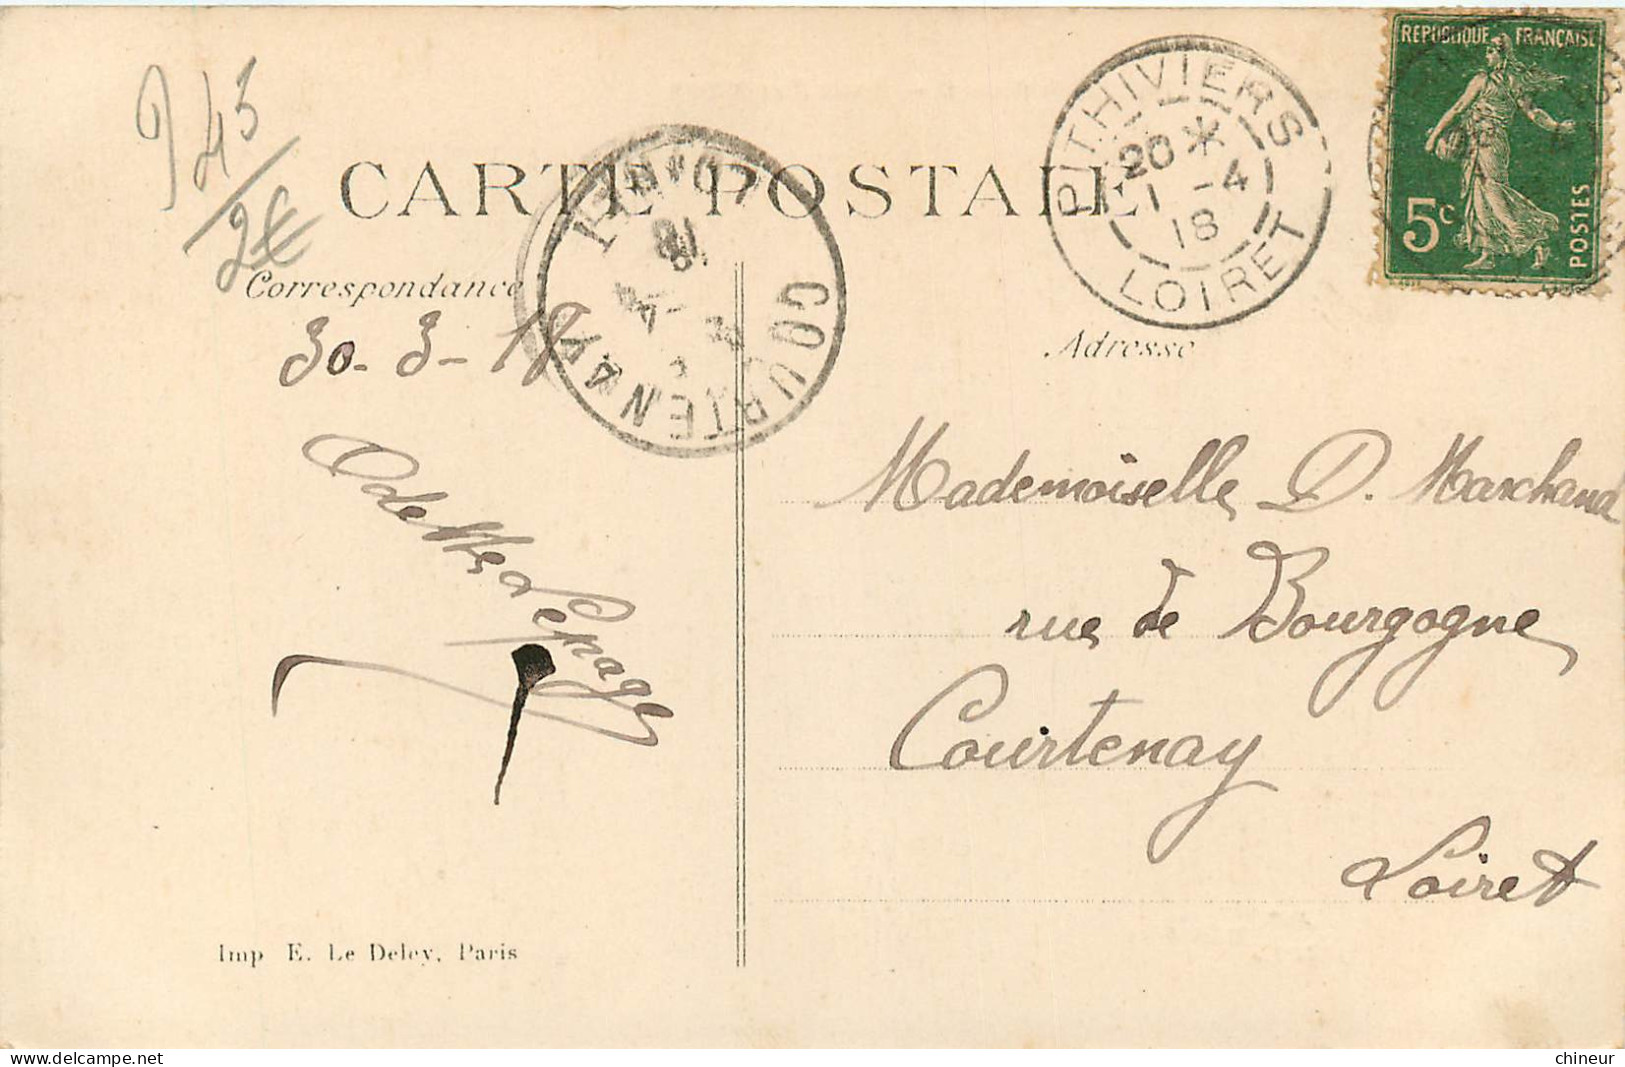 J 45
2€
CARTE POSTALE
Correspondance
Adresse
PITHIVIERS
20 *
1 -4
18
LOIRET
COURTENAY
REPUBLIQUE FRANÇAISE
5c
POSTES
30-3-18
Odette Lepage
Mademoiselle D. Marchand
rue de Bourgogne
Courtenay
Loiret
Imp E. Le Deley, Paris
chineur